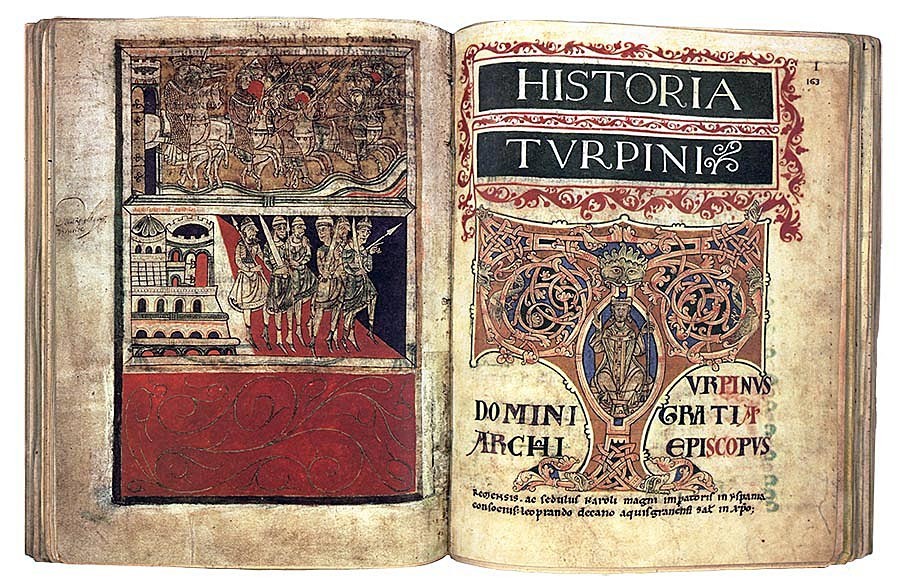 I
163
HISTORIA
TVRPINI
T
VRPINVS
DOMINI GRATIA
ARCHI EPISCOPVS
REMENSIS. ac sedulus Karoli magni impatoris in yspania
consocius. leoprando decano aquisgranensi sal in xpo;